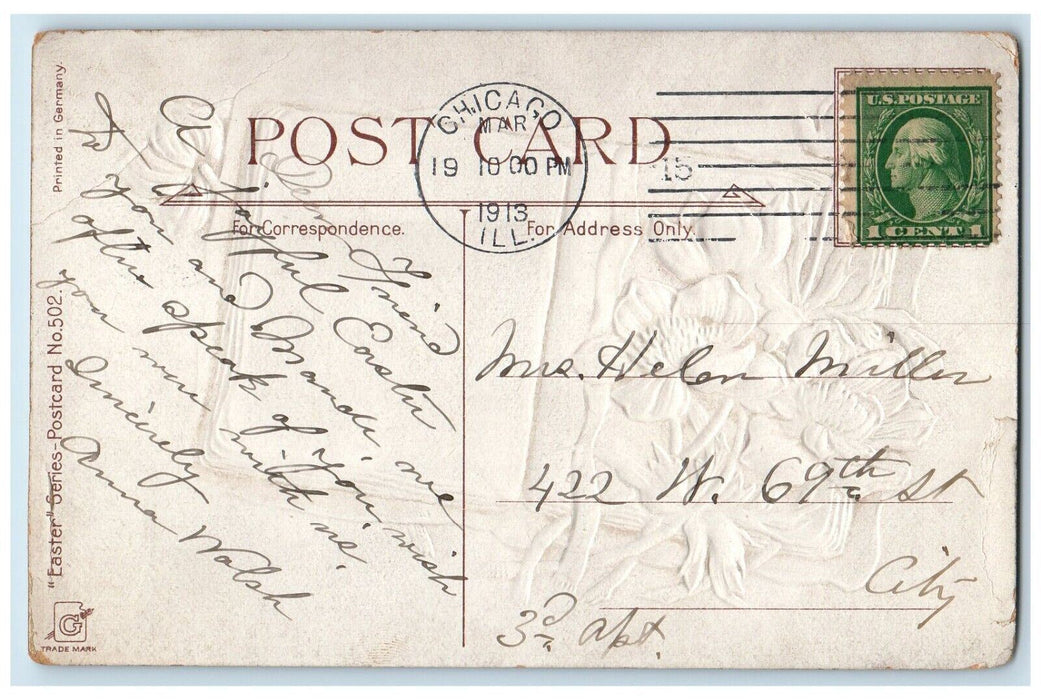 POST CARD
For Correspondence.
For Address Only.
CHICAGO
MAR
19 10 00 PM
1913
ILL.
15
U.S. POSTAGE
1 CENT 1
Printed in Germany.
"Easter" Series - Postcard No. 502.
G
TRADE MARK
Dear Friend
A Joyful Easter
To you and Mandi, we
often speak of you, wish
you were with us.
Sincerely
Anna Walsh
Mrs. Helen Miller
422 W. 69th St
City
3d apt.